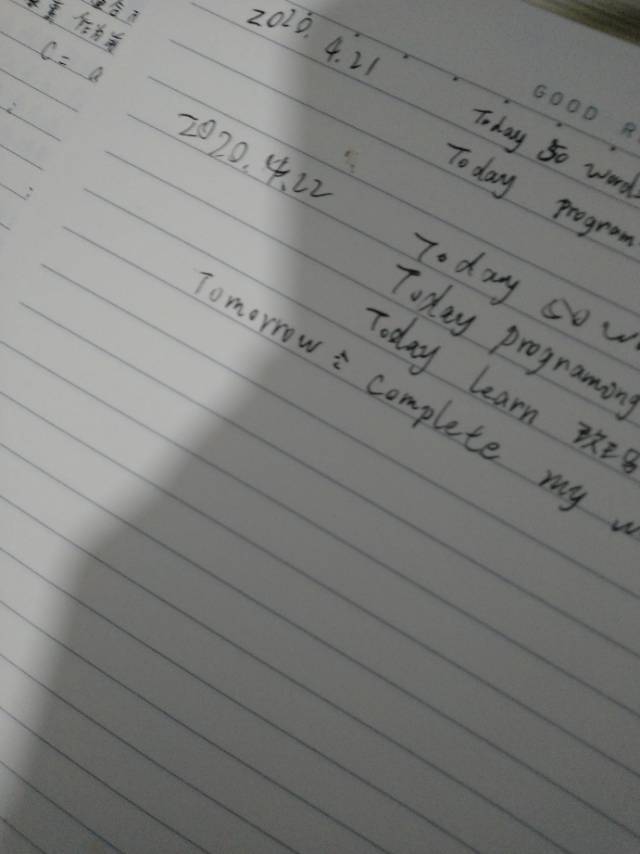 C = a
GOOD
2020. 4.21
Today 50 words
Today program
2020.4.22
Today 50
Today programing
Today learn
Tomorrow : complete my